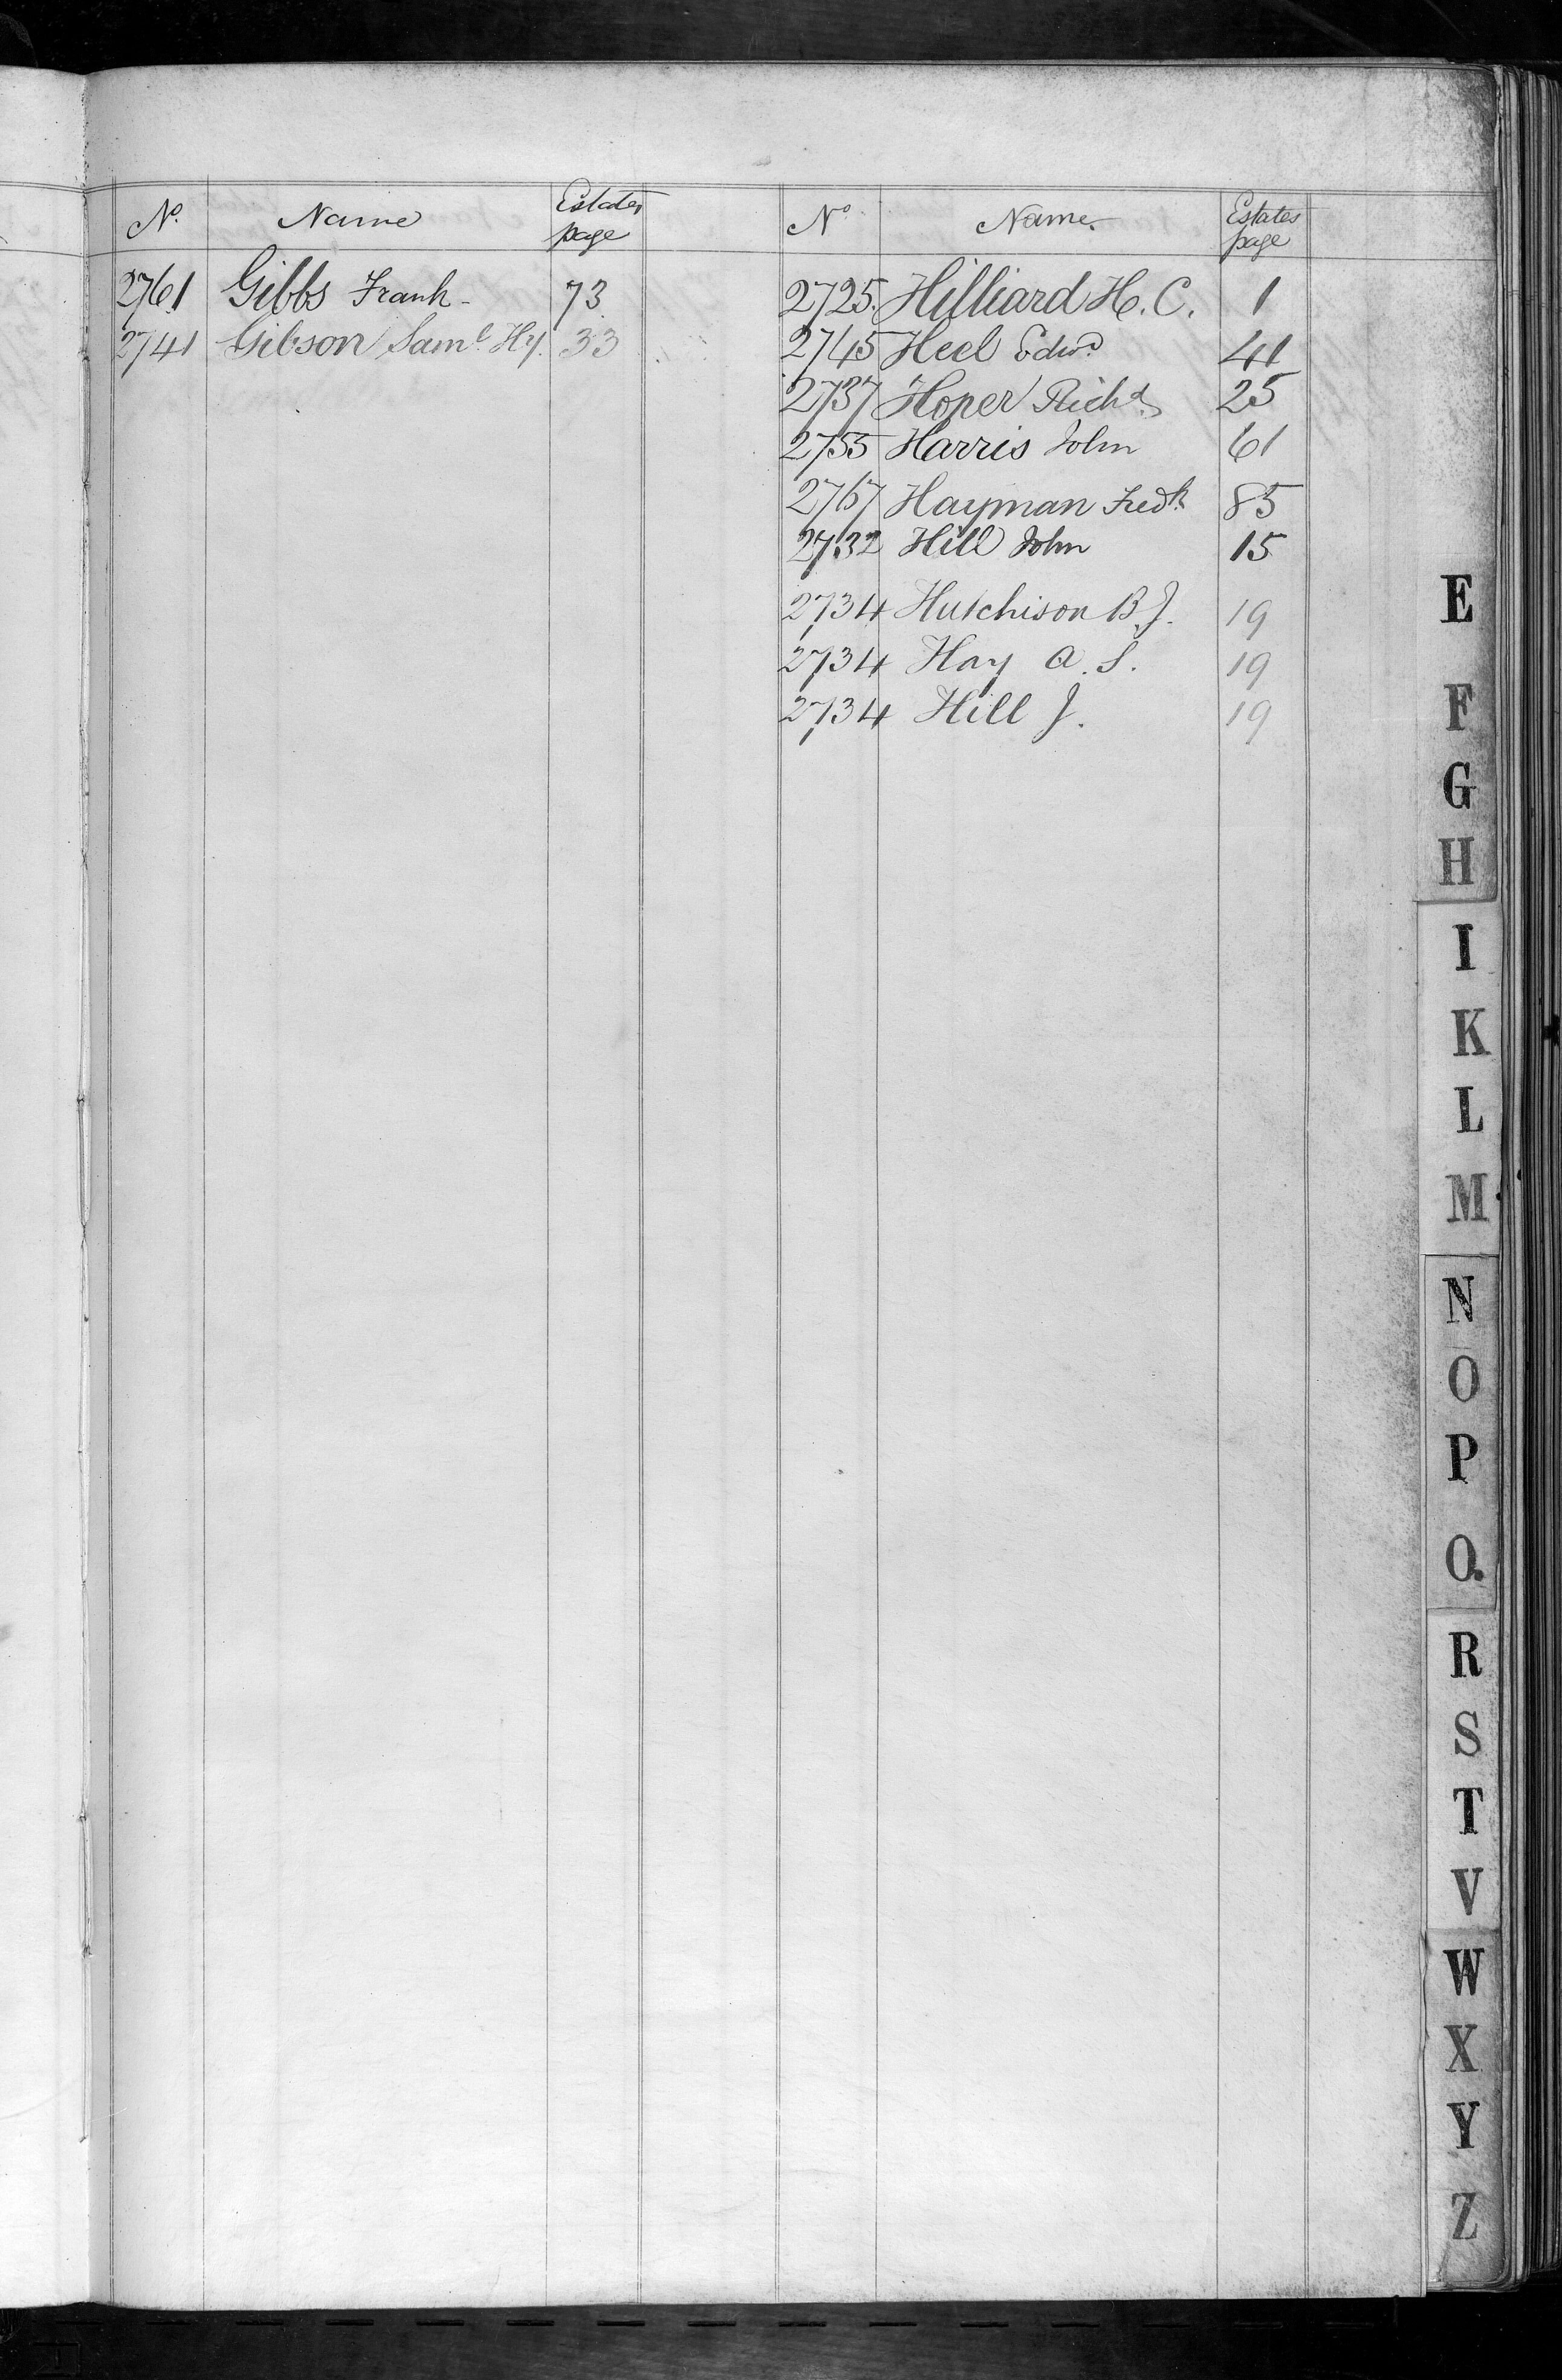 No. Name Estates page
2761 Gibbs Frank - 73
2741 Gibson Saml. Hy. 33
No Name. Estates page
2725. Hilliard H. C. 1
2745 Heel Edwd. 41
2737 Hoper Richd. 25
2755 Harris John 61
2767 Hayman Fredk. 85
2732 Hill John 15
2734 Hutchison B. J. 19
2734 Hay A. S. 19
2734 Hill J. 19
E
F
G
H
I
K
L
M
N
O
P
Q
R
S
T
V
W
X
Y
Z